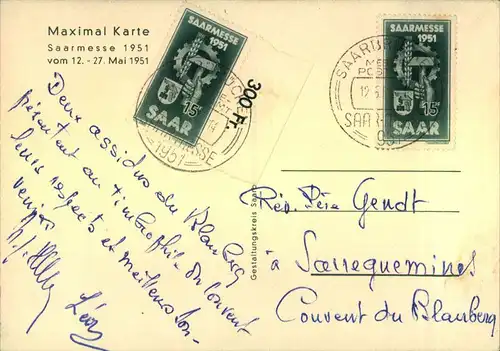 Maximal Karte
Saarmesse 1951
vom 12. - 27. Mai 1951
SAARMESSE
1951
15
SAAR
300 Fr.
1951
SAARMESSE
1951
15
SAAR
SAARBR
Deux assidus du Blauberg
présentant au timbrophile du Couvent
leurs respects et meilleurs sou-
venirs
Léon
Gestaltungskreis Saar
Rév. Père Gendt
à Sarreguemines
Couvent du Blauberg